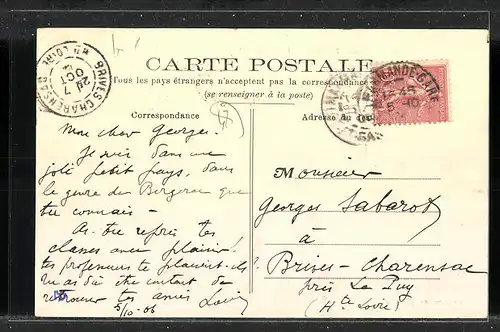 BRIVES CHARENSAC
Hte LOIRE
7
OCT
CARTE POSTALE
Tous les pays étrangers n'acceptent pas la correspondance
(se renseigner à la poste)
Correspondance
Adresse du
MARMANDE-GARE
15-45
5-10
Mon cher Georges.
Je suis dans un
joli petit pays, dans
le genre du Bergerac que
tu connais —
As-tu repris tes
classes avec plaisir?
tes professeurs te plaisent-ils?
tu as dû être content de
retrouver tes amis
5/10-06
Monsieur
Georges Sabarot
à
Brives-Charensac
près Le Puy
(Hte Loire)